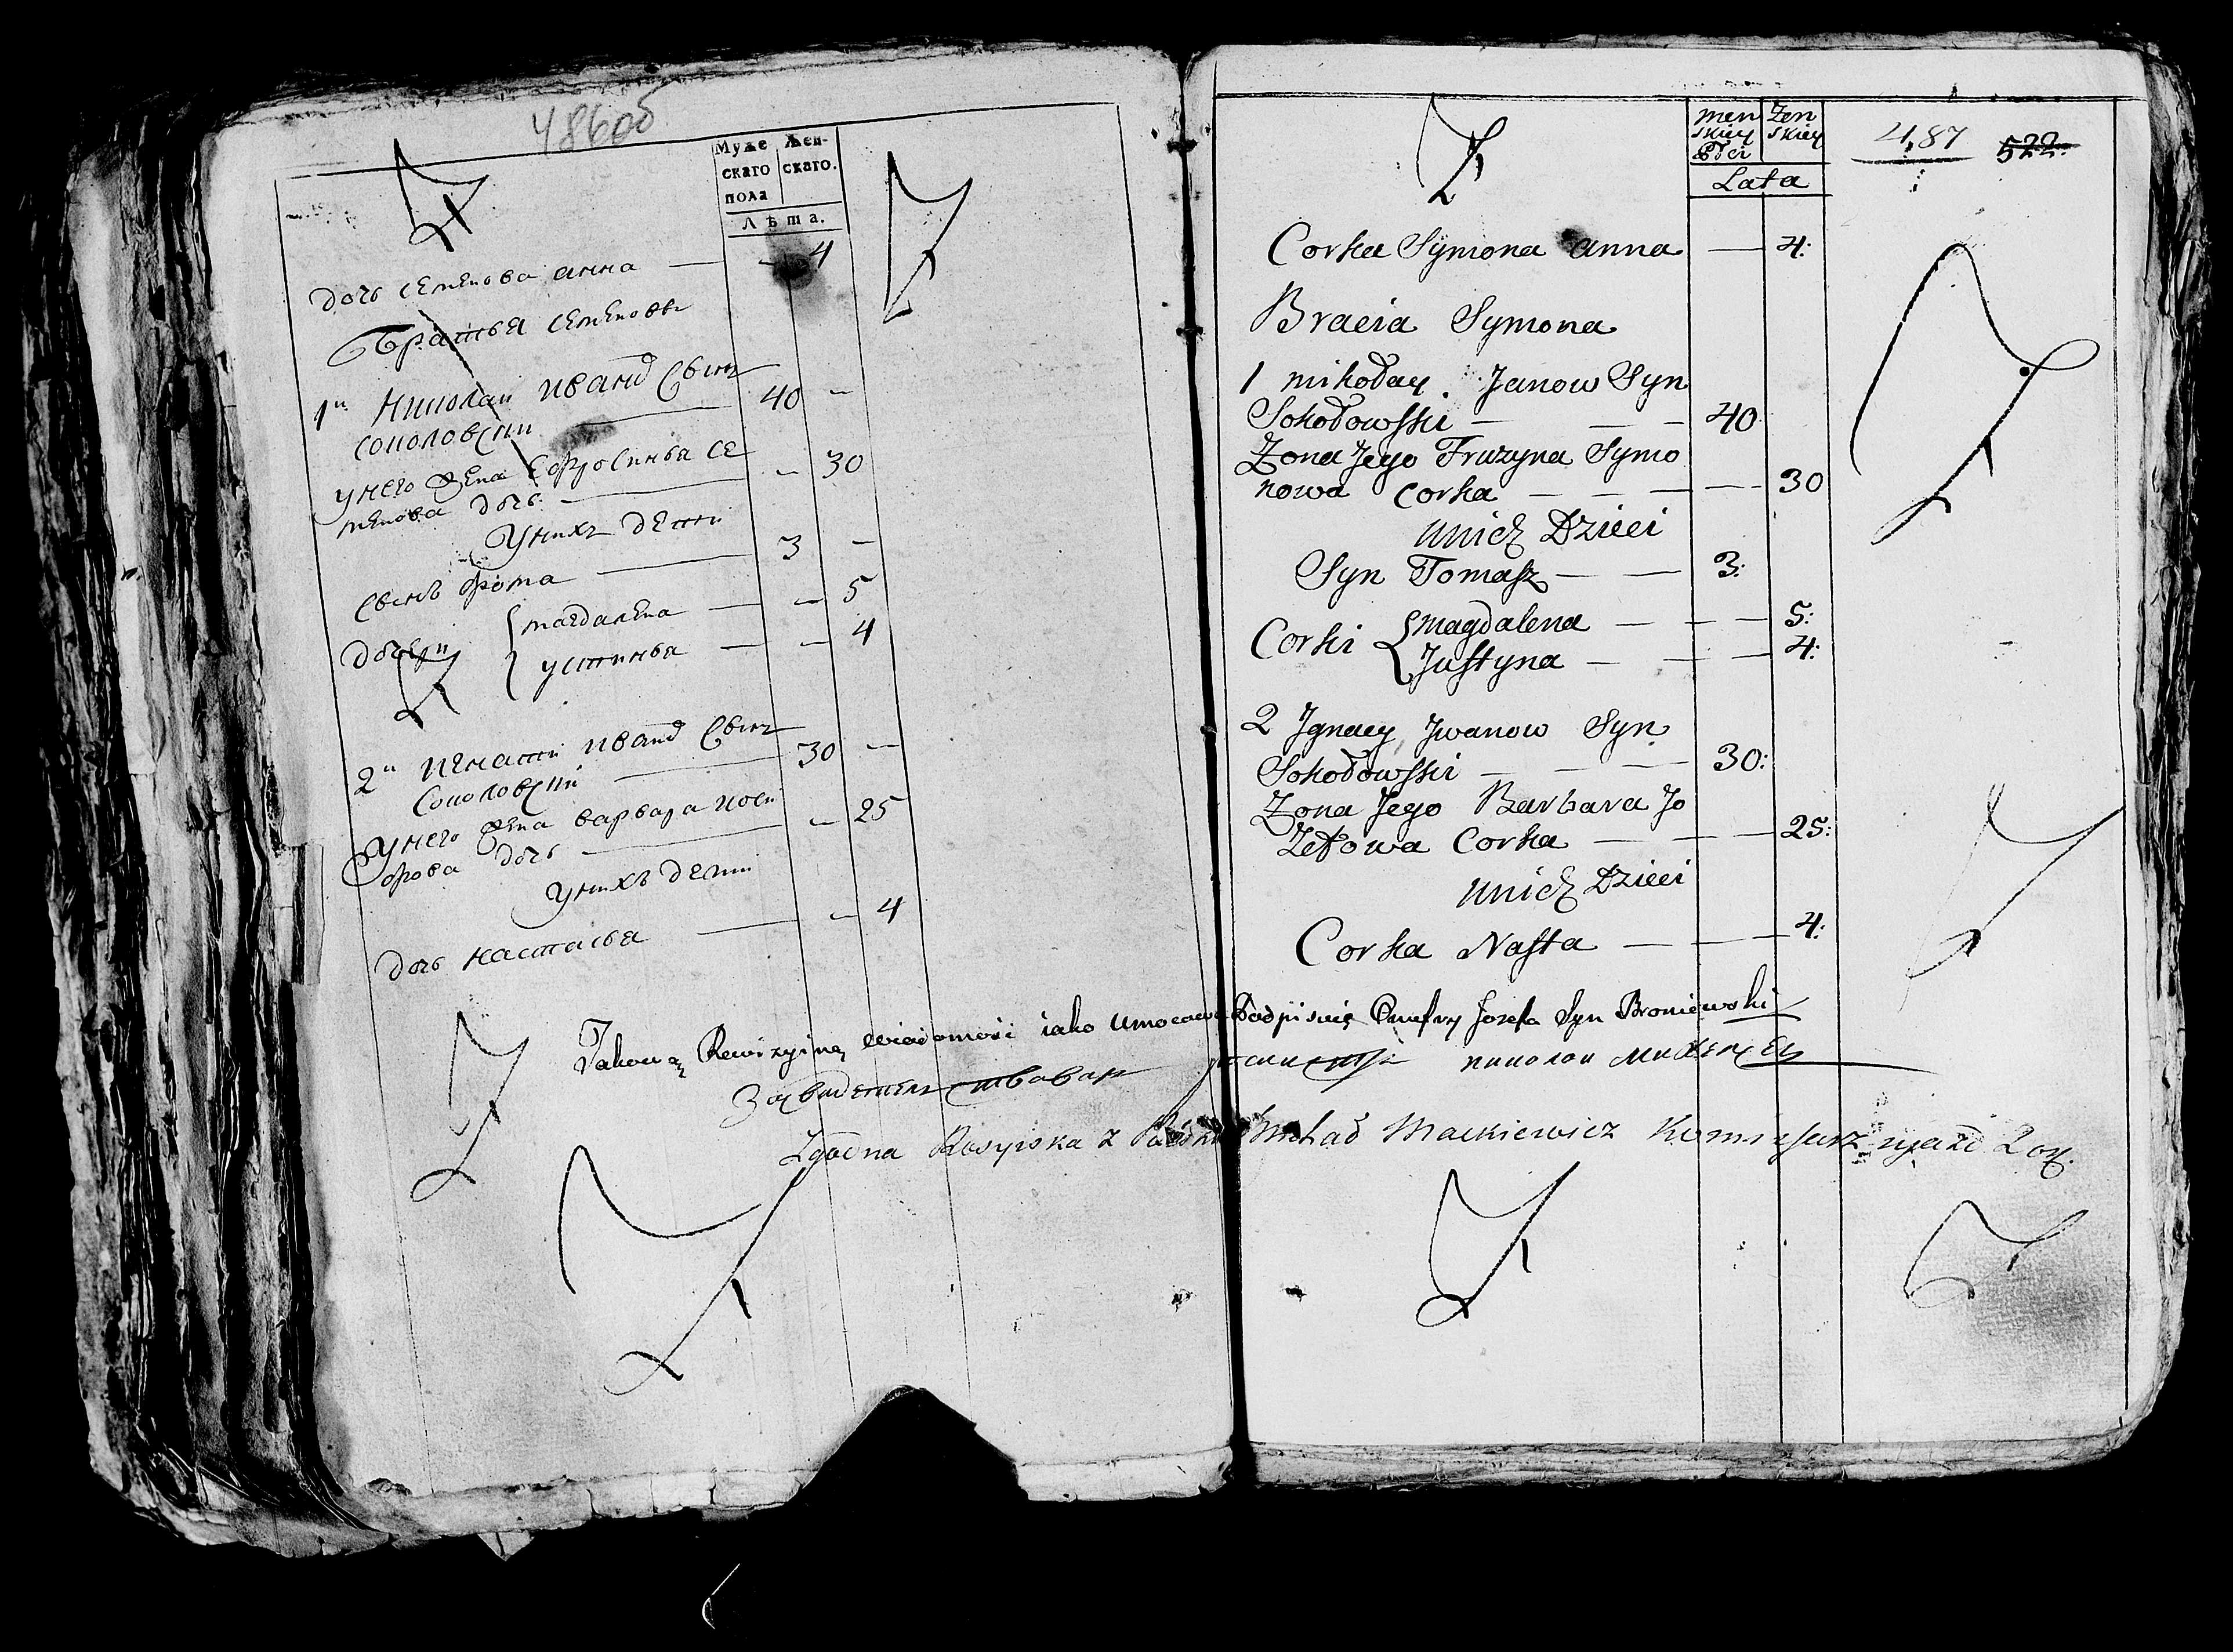 486об
Муже Жен-
скаго скаго.
пола
Лѣта.
дочь семенова анна — — 4
Братья семеновы
1й николай иванъ сынъ
соколовскій — 40 —
у него жена Ефросинья се
менова дочь — — 30
у нихъ дети
сынъ фома — 3 —
дочери { магдалена — — 5
устинья — — 4
2й игнатий иванъ сынъ
соколовскій — 30 —
у него жена варвара иоси
фова дочь — — 25
у нихъ дети
дочь настасья — — 4
men Zen
skiey skiey
Płci
Lata
487 522.
Corka Symona anna — 4:
Bracia Symona
1 mikołay Janow Syn
Sokołowski — — 40
Zona Jego Fruzyna Symo
nowa Corka — — — — 30
unich Dzieci
Syn Tomasz — — 3:
Corki { Magdalena — — — 5:
Justyna — — — 4:
2 Jgnacy Jwanow Syn
Sokołowski — — — 30:
Zona Jego Barbara Jo
zefowa Corka — — — 25:
unich Dzieci
Corka Nasta — — — 4:
Takową Rewizyiną wiadomość iako Umocowa Podpisuię Onufry Jozefa Syn Broniewski
Zgodna Rosyiska z Michał Mackiewicz